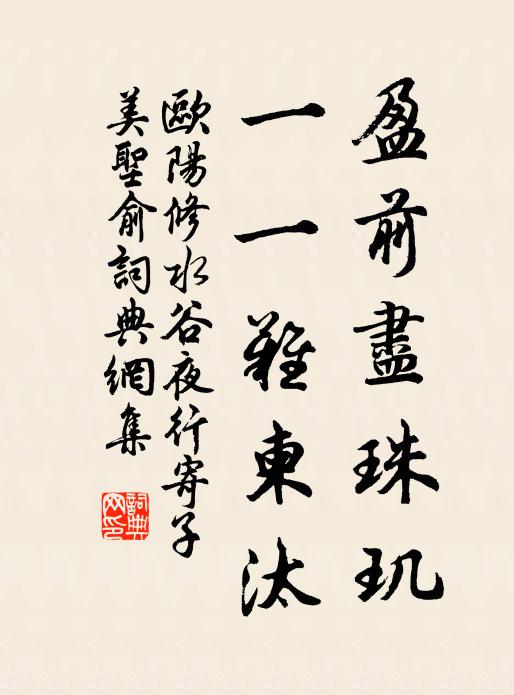 盈前盡珠玑
一一難東汰
歐陽修水谷夜行寄子
美聖俞詞典網集
詞典网印